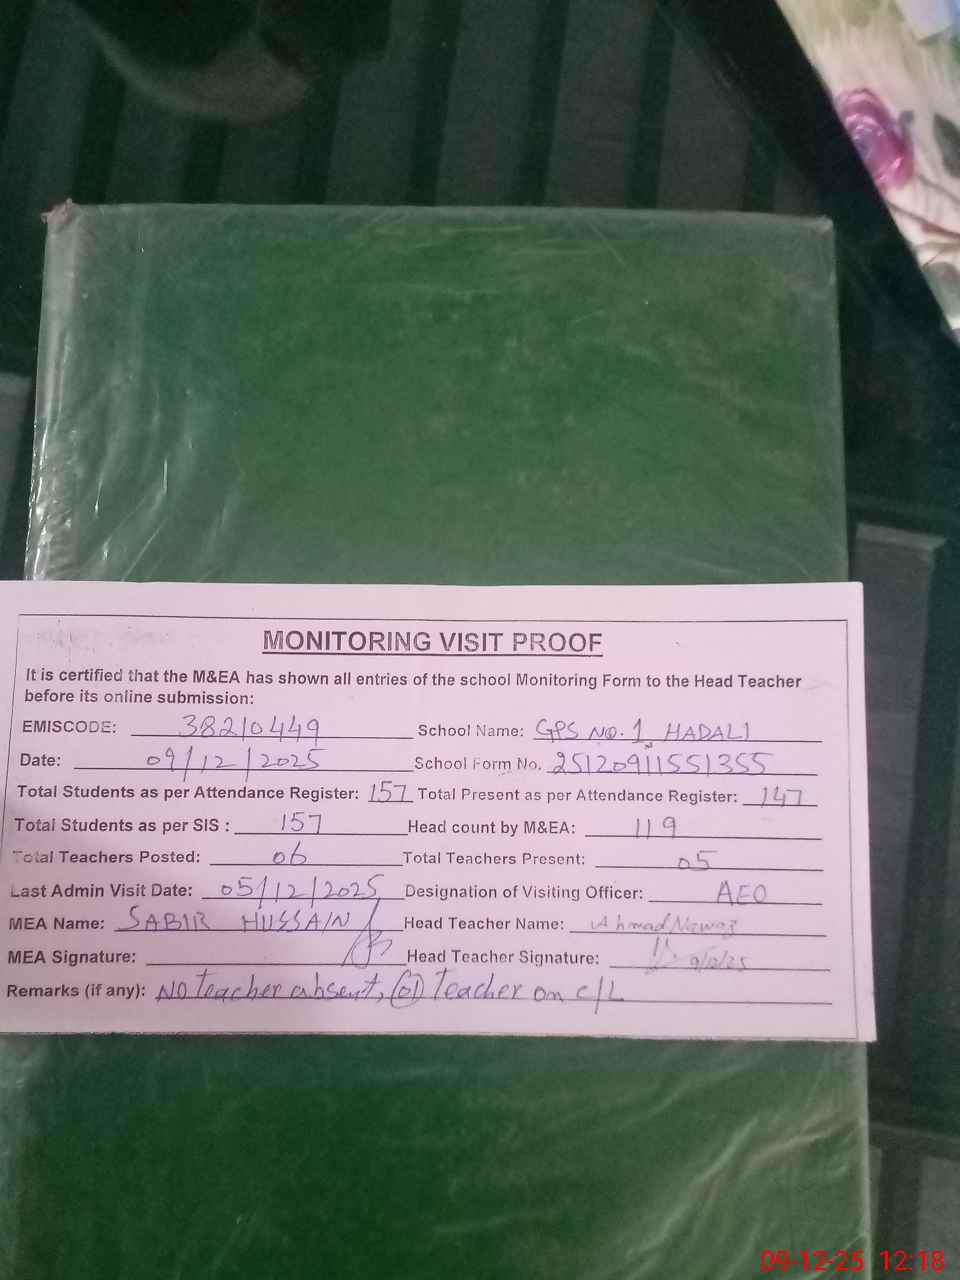 MONITORING VISIT PROOF
It is certified that the M&EA has shown all entries of the school Monitoring Form to the Head Teacher
before its online submission:
EMISCODE: 38210449 School Name: GPS NO. 1 HADALI
Date: 09/12/2025 School Form No. 25120911551355
Total Students as per Attendance Register: 157 Total Present as per Attendance Register: 147
Total Students as per SIS : 157 Head count by M&EA: 119
Total Teachers Posted: 06 Total Teachers Present: 05
Last Admin Visit Date: 05/12/2025 Designation of Visiting Officer: AEO
MEA Name: SABIR HUSSAIN Head Teacher Name: Ahmad Nawaz
MEA Signature: Head Teacher Signature:
Remarks (if any): NO Teacher absent, (01) Teacher on c/L
09-12-25 12:18